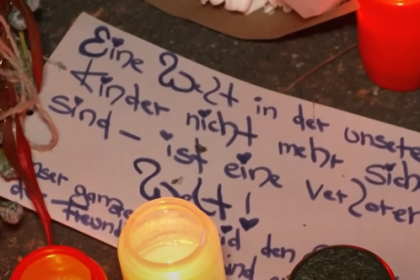 Eine Welt in der unsere
Kinder nicht mehr sich
sind - ist eine verloren
Welt!
unser ganze
freund id den
nd